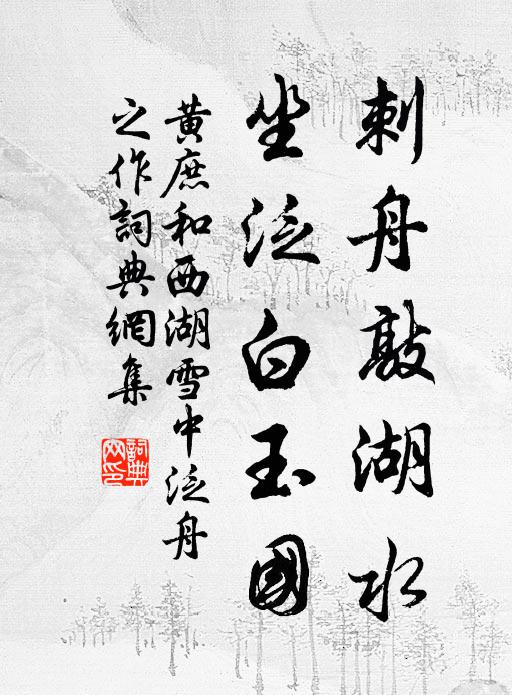 刺舟敲湖水
坐泛白玉國
黄庶和西湖雪中泛舟
之作詞典網集
詞典網印